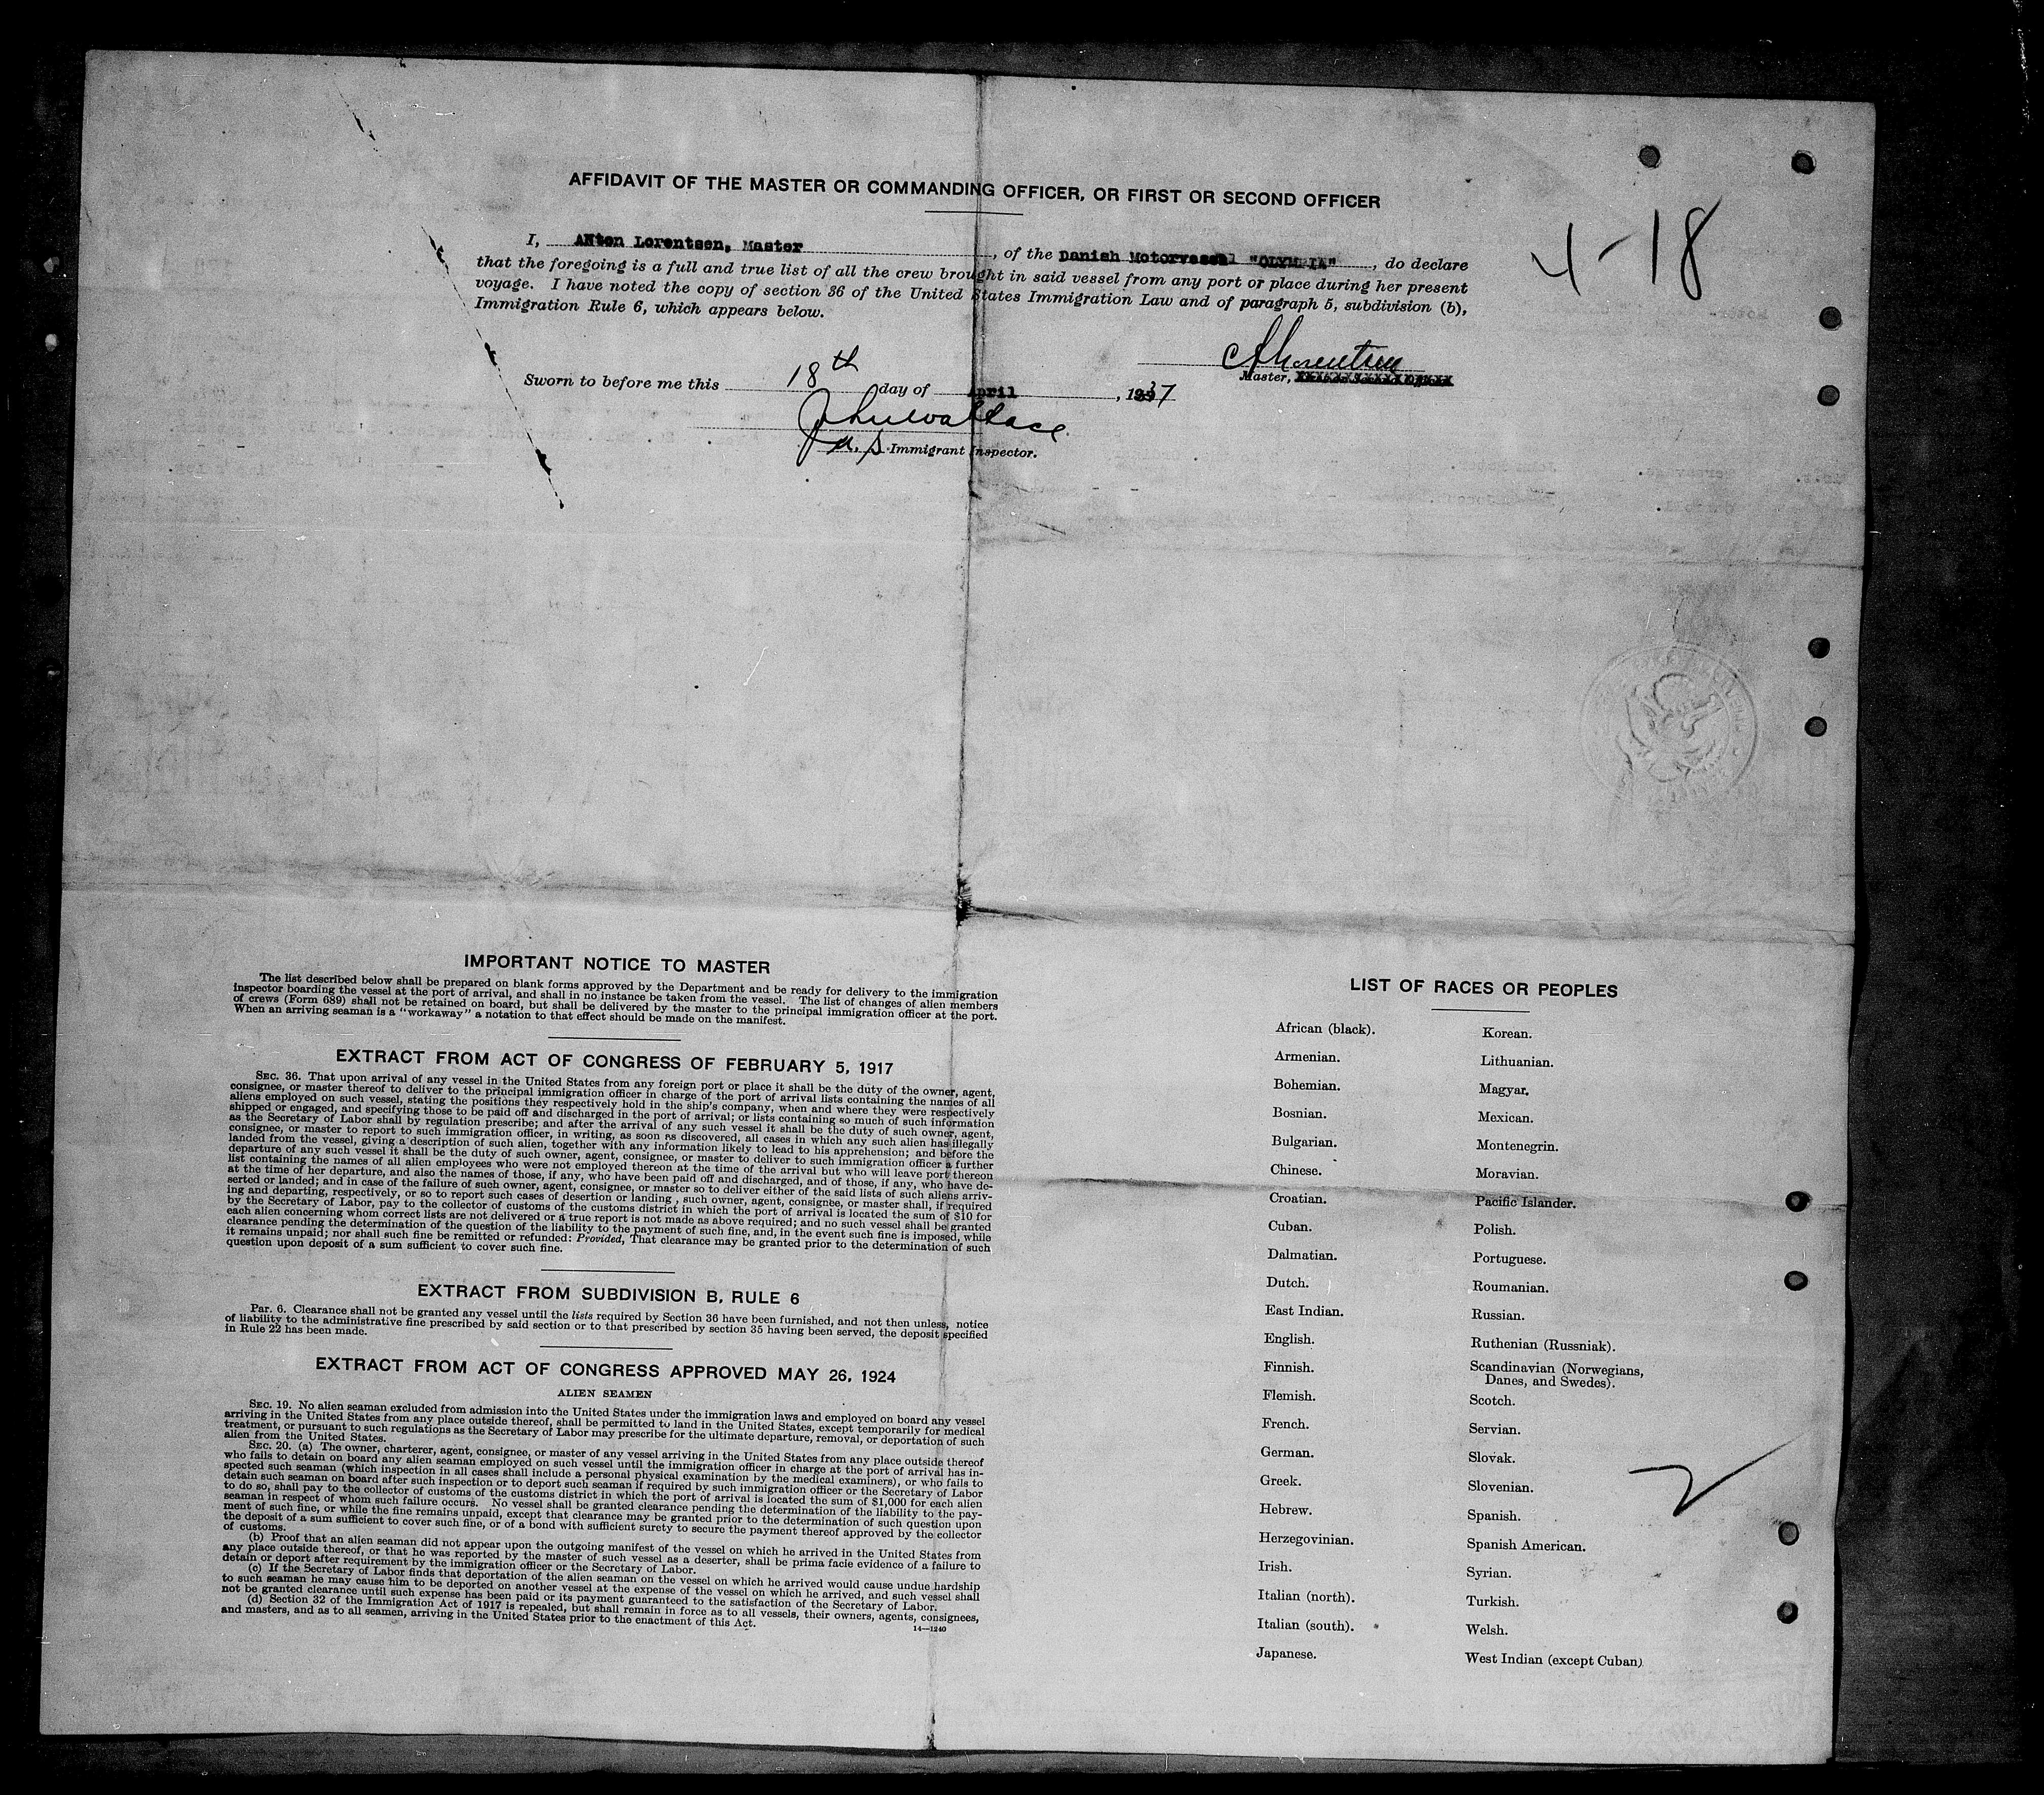 AFFIDAVIT OF THE MASTER OR COMMANDING OFFICER, OR FIRST OR SECOND OFFICER
4-18
I, ANton Lorentsen, Master, of the Danish Motorvessel "OLYMPIA", do declare
that the foregoing is a full and true list of all the crew brought in said vessel from any port or place during her present
voyage. I have noted the copy of section 36 of the United States Immigration Law and of paragraph 5, subdivision (b),
Immigration Rule 6, which appears below.
ALorentsen
Master,
Sworn to before me this 18th day of April, 1937
Jno Wallace
U. S. Immigrant Inspector.
IMPORTANT NOTICE TO MASTER
The list described below shall be prepared on blank forms approved by the Department and be ready for delivery to the immigration
inspector boarding the vessel at the port of arrival, and shall in no instance be taken from the vessel. The list of changes of alien members
of crews (Form 689) shall not be retained on board, but shall be delivered by the master to the principal immigration officer at the port.
When an arriving seaman is a "workaway" a notation to that effect should be made on the manifest.
EXTRACT FROM ACT OF CONGRESS OF FEBRUARY 5, 1917
SEC. 36. That upon arrival of any vessel in the United States from any foreign port or place it shall be the duty of the owner, agent,
consignee, or master thereof to deliver to the principal immigration officer in charge of the port of arrival lists containing the names of all
aliens employed on such vessel, stating the positions they respectively hold in the ship's company, when and where they were respectively
shipped or engaged, and specifying those to be paid off and discharged in the port of arrival; or lists containing so much of such information
as the Secretary of Labor shall by regulation prescribe; and after the arrival of any such vessel it shall be the duty of such owner, agent,
consignee, or master to report to such immigration officer, in writing, as soon as discovered, all cases in which any such alien has illegally
landed from the vessel, giving a description of such alien, together with any information likely to lead to his apprehension; and before the
departure of any such vessel it shall be the duty of such owner, agent, consignee, or master to deliver to such immigration officer a further
list containing the names of all alien employees who were not employed thereon at the time of the arrival but who will leave port thereon
at the time of her departure, and also the names of those, if any, who have been paid off and discharged, and of those, if any, who have de-
serted or landed; and in case of the failure of such owner, agent, consignee, or master so to deliver either of the said lists of such aliens arriv-
ing and departing, respectively, or so to report such cases of desertion or landing , such owner, agent, consignee, or master shall, if required
by the Secretary of Labor, pay to the collector of customs of the customs district in which the port of arrival is located the sum of $10 for
each alien concerning whom correct lists are not delivered or a true report is not made as above required; and no such vessel shall be granted
clearance pending the determination of the question of the liability to the payment of such fine, and, in the event such fine is imposed, while
it remains unpaid; nor shall such fine be remitted or refunded: Provided, That clearance may be granted prior to the determination of such
question upon deposit of a sum sufficient to cover such fine.
EXTRACT FROM SUBDIVISION B, RULE 6
Par. 6. Clearance shall not be granted any vessel until the lists required by Section 36 have been furnished, and not then unless, notice
of liability to the administrative fine prescribed by said section or to that prescribed by section 35 having been served, the deposit specified
in Rule 22 has been made.
EXTRACT FROM ACT OF CONGRESS APPROVED MAY 26, 1924
ALIEN SEAMEN
SEC. 19. No alien seaman excluded from admission into the United States under the immigration laws and employed on board any vessel
arriving in the United States from any place outside thereof, shall be permitted to land in the United States, except temporarily for medical
treatment, or pursuant to such regulations as the Secretary of Labor may prescribe for the ultimate departure, removal, or deportation of such
alien from the United States.
SEC. 20. (a) The owner, charterer, agent, consignee, or master of any vessel arriving in the United States from any place outside thereof
who fails to detain on board any alien seaman employed on such vessel until the immigration officer in charge at the port of arrival has in-
spected such seaman (which inspection in all cases shall include a personal physical examination by the medical examiners), or who fails to
detain such seaman on board after such inspection or to deport such seaman if required by such immigration officer or the Secretary of Labor
to do so, shall pay to the collector of customs of the customs district in which the port of arrival is located the sum of $1,000 for each alien
seaman in respect of whom such failure occurs. No vessel shall be granted clearance pending the determination of the liability to the pay-
ment of such fine, or while the fine remains unpaid, except that clearance may be granted prior to the determination of such question upon
the deposit of a sum sufficient to cover such fine, or of a bond with sufficient surety to secure the payment thereof approved by the collector
of customs.
(b) Proof that an alien seaman did not appear upon the outgoing manifest of the vessel on which he arrived in the United States from
any place outside thereof, or that he was reported by the master of such vessel as a deserter, shall be prima facie evidence of a failure to
detain or deport after requirement by the immigration officer or the Secretary of Labor.
(c) If the Secretary of Labor finds that deportation of the alien seaman on the vessel on which he arrived would cause undue hardship
to such seaman he may cause him to be deported on another vessel at the expense of the vessel on which he arrived, and such vessel shall
not be granted clearance until such expense has been paid or its payment guaranteed to the satisfaction of the Secretary of Labor.
(d) Section 32 of the Immigration Act of 1917 is repealed, but shall remain in force as to all vessels, their owners, agents, consignees,
and masters, and as to all seamen, arriving in the United States prior to the enactment of this Act.
14—1240
LIST OF RACES OR PEOPLES
African (black).
Armenian.
Bohemian.
Bosnian.
Bulgarian.
Chinese.
Croatian.
Cuban.
Dalmatian.
Dutch.
East Indian.
English.
Finnish.
Flemish.
French.
German.
Greek.
Hebrew.
Herzegovinian.
Irish.
Italian (north).
Italian (south).
Japanese.
Korean.
Lithuanian.
Magyar.
Mexican.
Montenegrin.
Moravian.
Pacific Islander.
Polish.
Portuguese.
Roumanian.
Russian.
Ruthenian (Russniak).
Scandinavian (Norwegians,
Danes, and Swedes).
Scotch.
Servian.
Slovak.
Slovenian.
Spanish.
Spanish American.
Syrian.
Turkish.
Welsh.
West Indian (except Cuban)
2